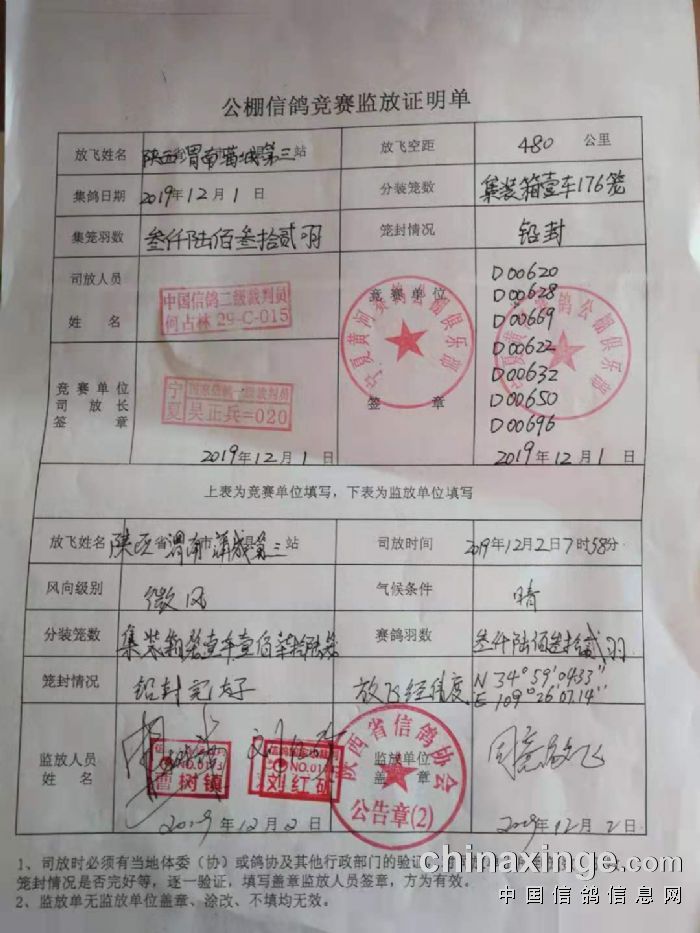 公棚信鸽竞赛监放证明单
放飞姓名 陕西省渭南市蒲城县第三站 放飞空距 480 公里
集鸽日期 2019年12月1日 分装笼数 集装箱壹车176笼
集笼羽数 叁仟陆佰叁拾贰羽 笼封情况 铅封
司放人员
姓 名
中国信鸽二级裁判员
何占林 29-C-015
竞赛单位
签 章
宁夏黄河赛鸽公棚俱乐部
D00620
D00628
D00669
D00622
D00632
D00650
D00696
竞赛单位
司放长
签 章
宁夏 吴正兵=020
2019年12月1日
2019年12月1日
上表为竞赛单位填写，下表为监放单位填写
放飞姓名 陕西省渭南市蒲城县第三站 司放时间 2019年12月2日7时58分
风向级别 微风 气候条件 晴
分装笼数 集装箱 赛鸽羽数 叁仟陆佰叁拾贰羽
笼封情况 铅封完好 放飞经纬度 N 34°59′04.33″
E 109°26′07.14″
监放人员
姓 名
树镇
刘红
监放单位
盖 章
陕西省信鸽协会
公告章(2)
同意放飞
2019年12月2日
2019年12月2日
1、司放时必须有当地体委（协）或鸽协及其他行政部门的验证
笼封情况是否完好等，逐一验证，填写盖章监放人员签章，方为有效。
2、监放单无监放单位盖章、涂改、不填均无效。
chinaxinge.com
中国信鸽信息网